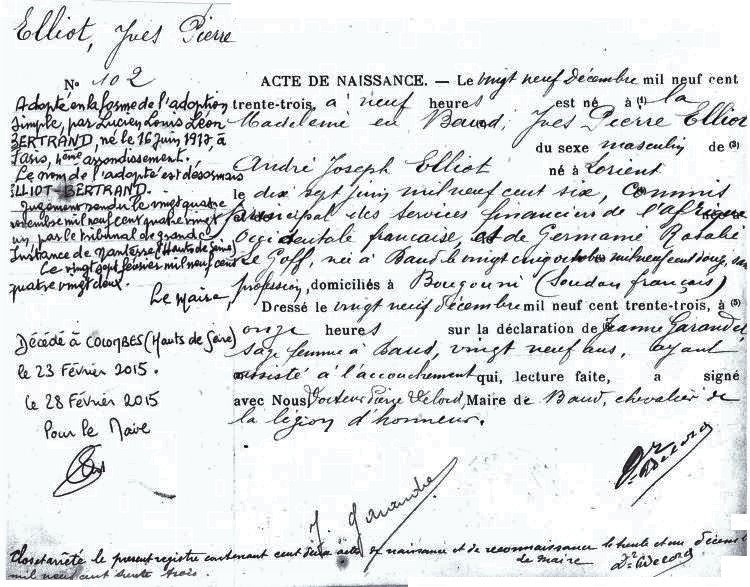 Elliot, Yves Pierre
N° 102
Adopté en la forme de l'adoption
simple, par Lucien Louis Léon
BERTRAND, né le 16 juin 1917 à
Paris, 4ème arrondissement.
Le nom de l'adopté est désormais
ELLIOT-BERTRAND.
Jugement rendu le vingt quatre
novembre mil neuf cent quatre vingt
un, par le tribunal de grande
Instance de Nanterre (Hauts de Seine)
Le vingt sept février mil neuf cent
quatre vingt deux.
Le Maire,
Décédé à COLOMBES (Hauts de Seine)
le 23 Février 2015.
le 28 Février 2015
Pour le Maire
ACTE DE NAISSANCE. — Le vingt neuf Décembre mil neuf cent
trente-trois, à neuf heures est né à (1) la
Madeleine en Baud, Yves Pierre Elliot
du sexe masculin de (3)
André Joseph Elliot né à Lorient
le dix sept juin mil neuf cent six, commis
principal des services financiers de l'afrique
Occidentale française, et de Germaine Rosalie
Le Goff, née à Baud le vingt cinq octobre mil neuf cent douze, sans
profession, domiciliés à Bougouni (Soudan français)
Dressé le vingt neuf décembre mil neuf cent trente-trois, à (5)
onze heures sur la déclaration de Jeanne
sage femme à Baud, vingt neuf ans, ayant
assisté à l'accouchement qui, lecture faite, a signé
avec Nous Docteur Pierre Maire de Baud, chevalier de
la légion d'honneur.
Clos et arrêté le présent registre contenant cent deux actes de naissance et de reconnaissance le trente et un décembre
mil neuf cent trente trois. le maire